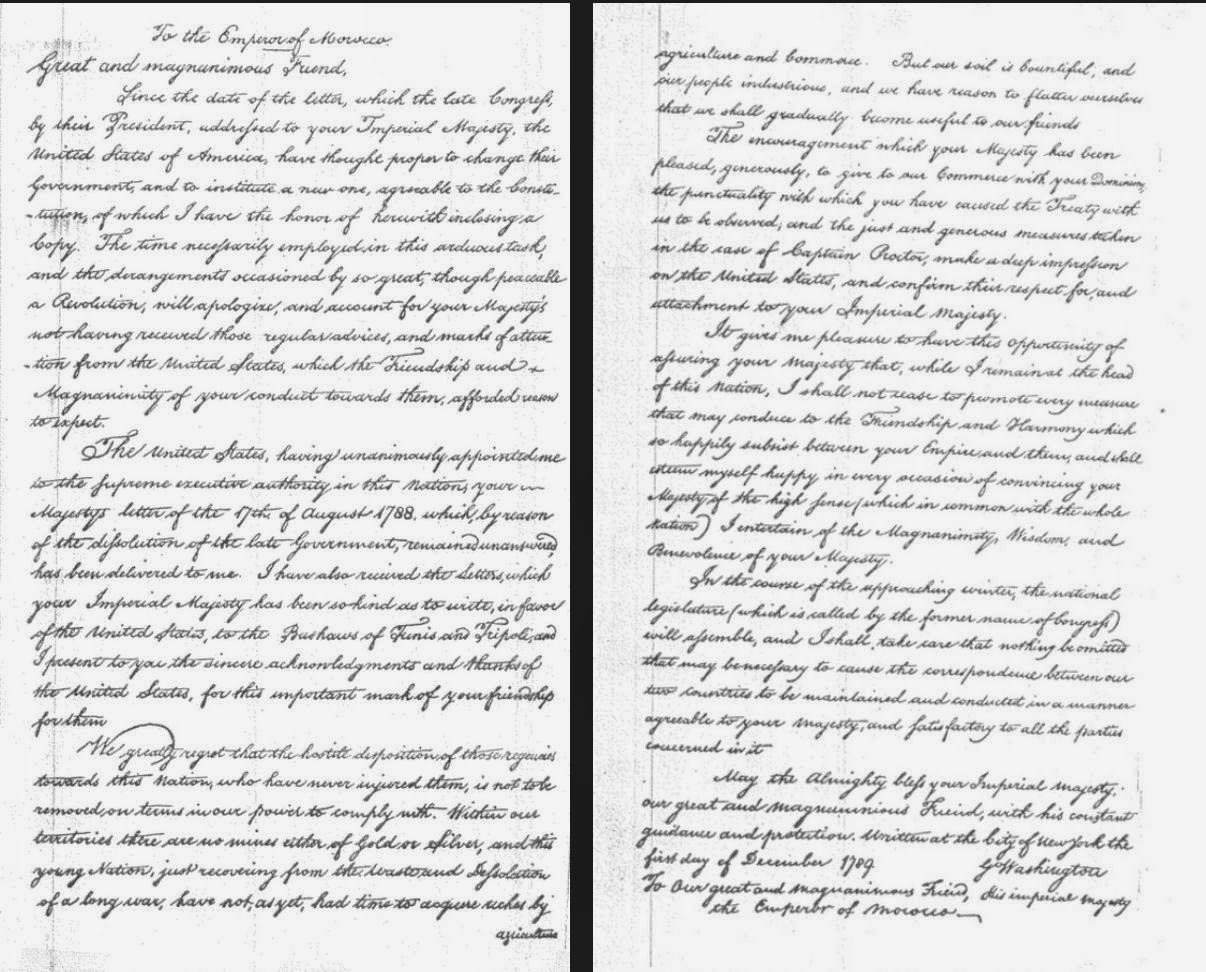 To the Emperor of Morocco.
Great and magnanimous Friend,
Since the date of the letter, which the late Congress,
by their President, addressed to your Imperial Majesty, the
United States of America, have thought proper to change their
Government, and to institute a new one, agreable to the Consti-
-tution, of which I have the honor of herewith inclosing a
Copy. The time necessarily employed in this arduous task,
and the derangements occasioned by so great, though peaceable
a Revolution, will apologize, and account for your Majesty's
not having received those regular advices, and marks of atten-
-tion from the United States, which the Friendship and
Magnanimity of your conduct towards them, afforded reason
to expect.
The United States, having unanimously appointed me
to the supreme executive authority in this Nation, your
Majestys letter of the 17th. of August 1788. which, by reason
of the dissolution of the late Government, remained unanswered
has been delivered to me. I have also received the Letters, which
your Imperial Majesty has been so kind as to write, in favor
of the United States, to the Bashaws of Tunis and Tripoli, and
I present to you the sincere acknowledgments and thanks of
the United States, for this important mark of your friendship
for them
We greatly regret that the hostile disposition of those regencies
towards this Nation, who have never injured them, is not to be
removed, on terms in our power to comply with. Within our
territories there are no mines either of Gold or Silver, and this
young Nation, just recovering from the Waste and Desolation
of a long war, have not, as yet, had time to acquire riches by
agriculture
agriculture and Commerce. But our soil is bountiful, and
our people industrious, and we have reason to flatter ourselves
that we shall gradually become useful to our friends
The encouragement which your Majesty has been
pleased, generously, to give to our Commerce with your Dominions,
the punctuality with which you have caused the Treaty with
us to be observed, and the just and generous measures taken
in the case of Captain Proctor, make a deep impression
on the United States, and confirm their respect for, and
attachment to your Imperial Majesty.
It gives me pleasure to have this opportunity of
assuring your Majesty that, while I remain at the head
of this Nation, I shall not cease to promote every measure
that may conduce to the Friendship and Harmony which
so happily subsist between your Empire and them, and shall
esteem myself happy in every occasion of convincing your
Majesty of the high sense (which in common with the whole
nation) I entertain of the Magnanimity, Wisdom, and
Benevolence of your Majesty.
In the course of the approaching winter, the national
legislature (which is called by the former name of Congress)
will assemble, and I shall take care that nothing be omitted
that may be necessary to cause the correspondence between our
two countries to be maintained and conducted in a manner
agreeable to your Majesty, and satisfactory to all the parties
concerned in it
May the Almighty bless your Imperial Majesty,
our great and magnanimous Friend, with his constant
guidance and protection. Written at the City of New York the
first day of December 1789. Go Washington
To Our great and magnanimous Friend, His imperial majesty
the Emperor of Morocco.